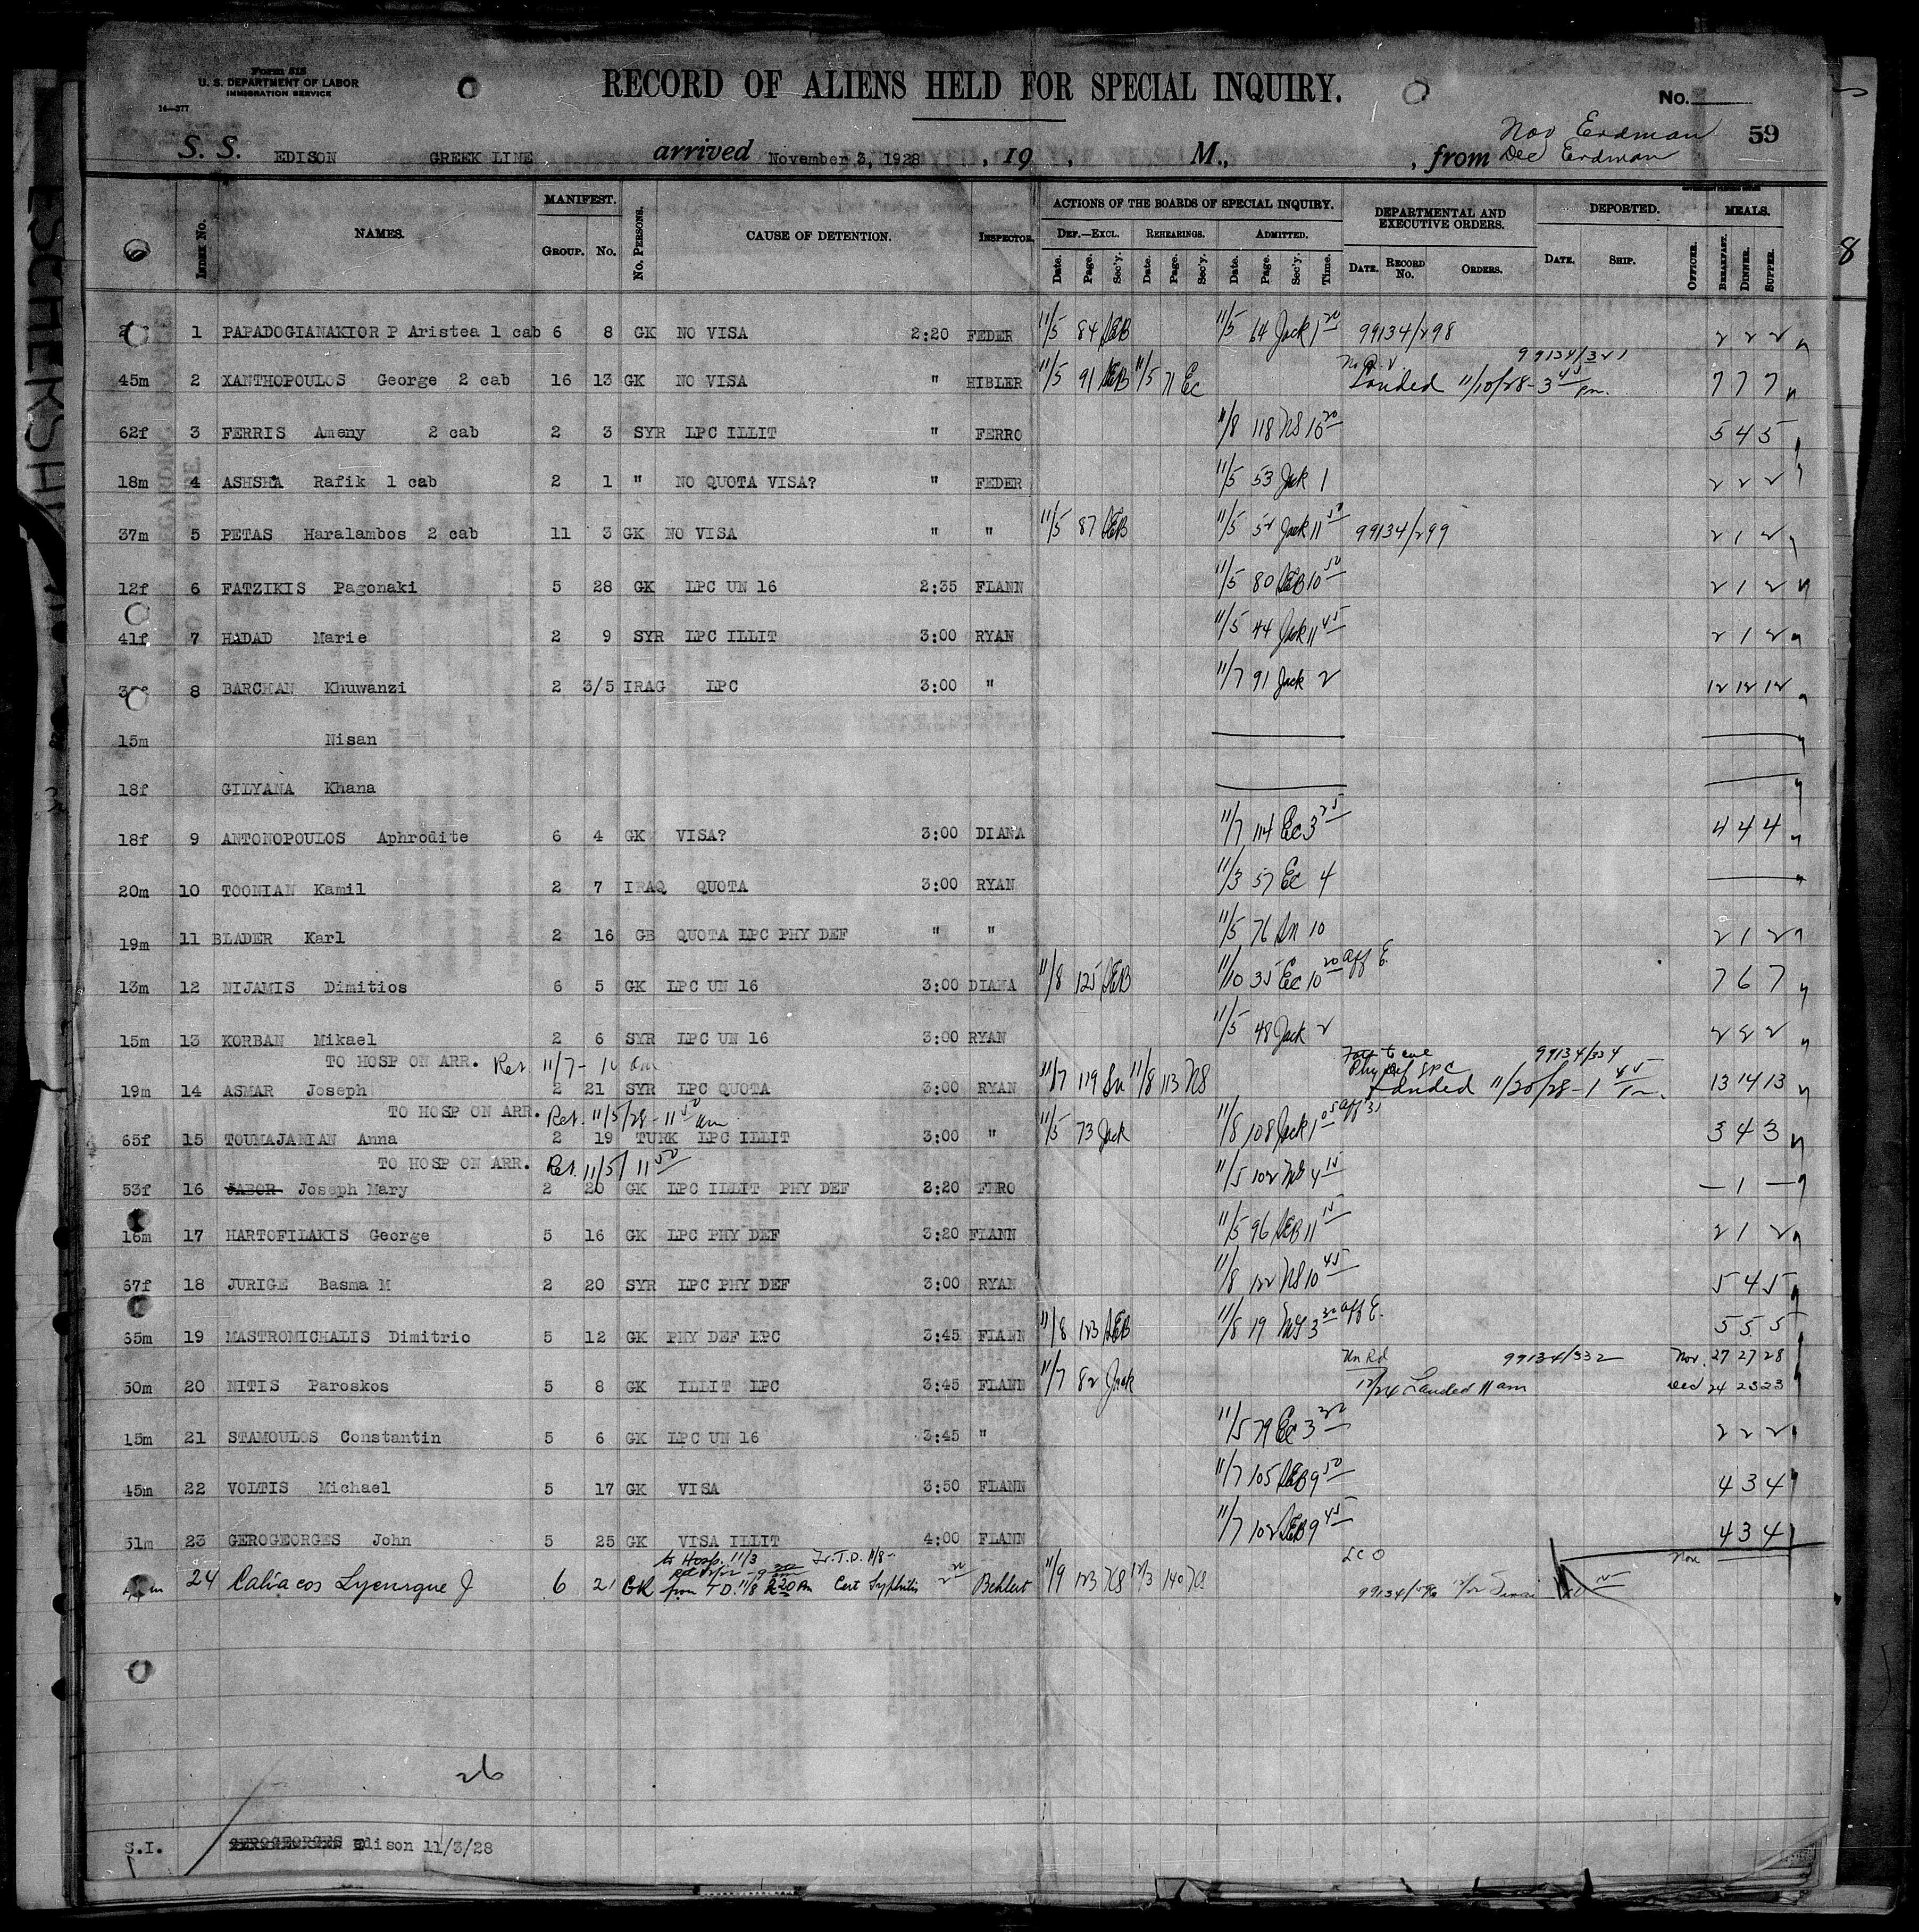 Form 618
U. S. DEPARTMENT OF LABOR
IMMIGRATION SERVICE
14—377
RECORD OF ALIENS HELD FOR SPECIAL INQUIRY.
No.
59
Nov Erdman
S. S. EDISON GREEK LINE arrived November 3, 1928 , 19 , M., , from Dec Erdman
INDEX No. NAMES. MANIFEST. GROUP. No. No. PERSONS. CAUSE OF DETENTION. INSPECTOR. ACTIONS OF THE BOARDS OF SPECIAL INQUIRY. DEF.—EXCL. Date. Page. Sec'y. REHEARINGS. Date. Page. Sec'y. ADMITTED. Date. Page. Sec'y. Time. DEPARTMENTAL AND EXECUTIVE ORDERS. DATE. RECORD No. ORDERS. DEPORTED. DATE. SHIP. OFFICER. MEALS. BREAKFAST. DINNER. SUPPER.
8
1 PAPADOGIANAKIOR P Aristea 1 cab 6 8 GK NO VISA 2:20 FEDER 11/5 84 DEB 11/5 64 Jack 1 20 99134/298 2 2 2
99134/321
45m 2 XANTHOPOULOS George 2 cab 16 13 GK NO VISA " HIBLER 11/5 91 DEB 11/5 71 Ec Landed 11/10/28 - 3 45 pm. 7 7 7
62f 3 FERRIS Ameny 2 cab 2 3 SYR LPC ILLIT " FERRO 11/8 118 NS 10 20 5 4 5
18m 4 ASHSHA Rafik 1 cab 2 1 " NO QUOTA VISA? " FEDER 11/5 53 Jack 1 2 2 2
37m 5 PETAS Haralambos 2 cab 11 3 GK NO VISA " " 11/5 87 DEB 11/5 52 Jack 11 50 99134/299 2 1 2
12f 6 FATZIKIS Pagonaki 5 28 GK LPC UN 16 2:35 FLANN 11/5 80 DEB 10 50 2 1 2
41f 7 HADAD Marie 2 9 SYR LPC ILLIT 3:00 RYAN 11/5 44 Jack 11 45 2 1 2
8 BARCHAN Khuwanzi 2 3/5 IRAG LPC 3:00 " 11/7 91 Jack 2 12 12 12
15m Nisan
18f GILYANA Khana
18f 9 ANTONOPOULOS Aphrodite 6 4 GK VISA? 3:00 DIANA 11/7 114 Ec 3 25 4 4 4
20m 10 TOONIAN Kamil 2 7 IRAQ QUOTA 3:00 RYAN 11/3 57 Ec 4
19m 11 BLADER Karl 2 16 GB QUOTA LPC PHY DEF " " 11/5 76 Sn 10 2 1 2
13m 12 NIJAMIS Dimitios 6 5 GK LPC UN 16 3:00 DIANA 11/8 125 DEB 11/10 35 Ec 10 20 Aff E. 7 6 7
15m 13 KORBAN Mikael 2 6 SYR LPC UN 16 3:00 RYAN 11/5 48 Jack 2 2 2 2
TO HOSP ON ARR. Ret 11/7 - 10 am 99134/334
19m 14 ASMAR Joseph 2 21 SYR LPC QUOTA 3:00 RYAN 11/7 119 Sn 11/8 113 NS Phy Def LPC Landed 11/20/28 - 1 45 13 14 13
TO HOSP ON ARR. Ret. 11/5/28 - 11 50 am
65f 15 TOUMAJANIAN Anna 2 19 TURK LPC ILLIT 3:00 " 11/5 73 Jack 11/8 108 Jack 1 05 3 4 3
TO HOSP ON ARR. Ret. 11/5/ 11 50
53f 16 JABOR Joseph Mary 2 20 GK LPC ILLIT PHY DEF 3:20 FERO 11/5 102 NS 4 15 — 1 —
16m 17 HARTOFILAKIS George 5 16 GK LPC PHY DEF 3:20 FLANN 11/5 96 DEB 11 15 2 1 2
67f 18 JURIGE Basma M 2 20 SYR LPC PHY DEF 3:00 RYAN 11/8 122 NS 10 45 5 4 5
65m 19 MASTROMICHALIS Dimitrio 5 12 GK PHY DEF LPC 3:45 FLANN 11/8 123 DEB 11/8 19 3 30 Aff E. 5 5 5
99134/332 Nov. 27 27 28
50m 20 NITIS Paroskos 5 8 GK ILLIT LPC 3:45 FLANN 11/7 82 Jack 12/24 Landed 11 am Dec 24 23 23
15m 21 STAMOULOS Constantin 5 6 GK LPC UN 16 3:45 " 11/5 79 Ec 3 2 2 2
45m 22 VOLTIS Michael 5 17 GK VISA 3:50 FLANN 11/7 105 DEB 9 50 4 3 4
51m 23 GEROGEORGES John 5 25 GK VISA ILLIT 4:00 FLANN 11/7 102 DEB 9 45 4 3 4
to Hosp. 11/3 Nov
24 Caliacos Lycurgue J 6 21 GK from T D. 11/8 Cert Syphilis Behlert 11/9 123 NS 12/3 140 NS
26
S.I. GEROGEORGES Edison 11/3/28